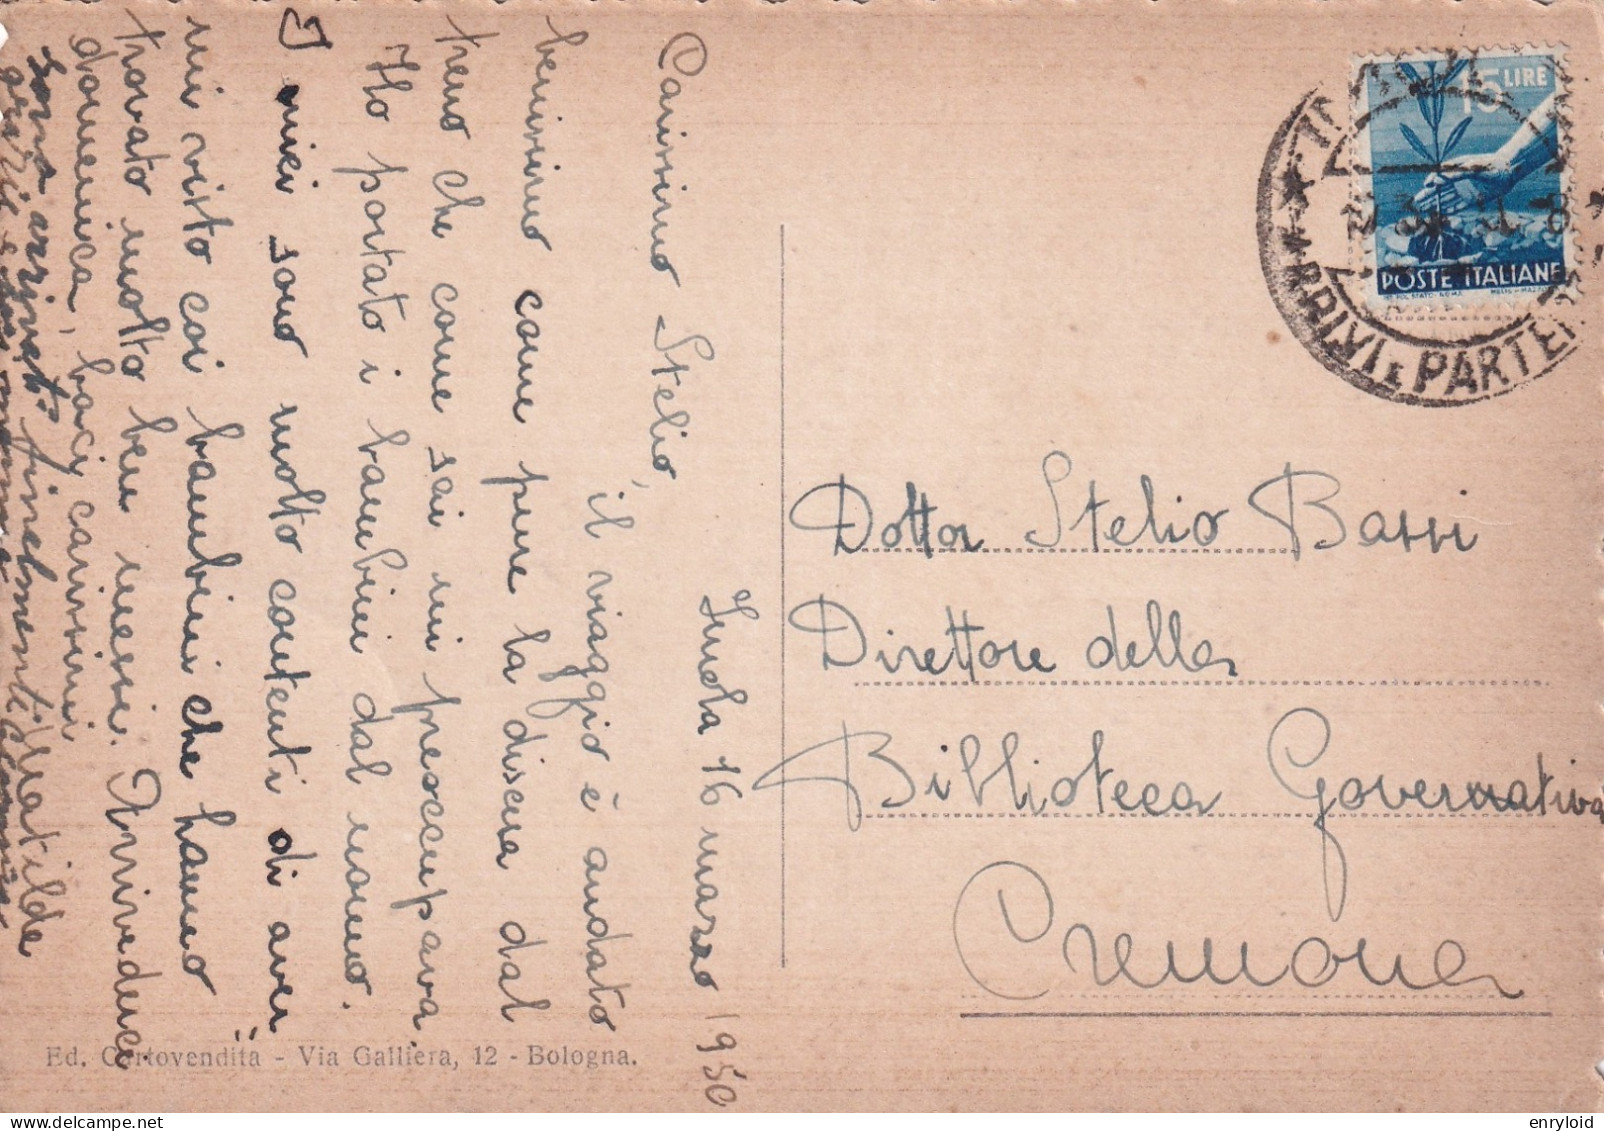 Imola 16 marzo 1950
Carissimo Stelio,
il viaggio è andato
benissimo come pure la discesa dal
treno che come sai mi preoccupava
Ho portato i bambini dal nonno.
I miei sono molto contenti di aver
mi visto coi bambini che hanno
trovato molto ben messi. Arrivederci
domenica, baci carissimi
Matilde
sono arrivato finalmente
15 LIRE
POSTE ITALIANE
ARRIVI E PARTENZE
Dottor Stelio Bassi
Direttore della
Biblioteca Governativa
Cremona
Ed. Cartovendita - Via Galliera, 12 - Bologna.
enryloid
www.delcampe.net